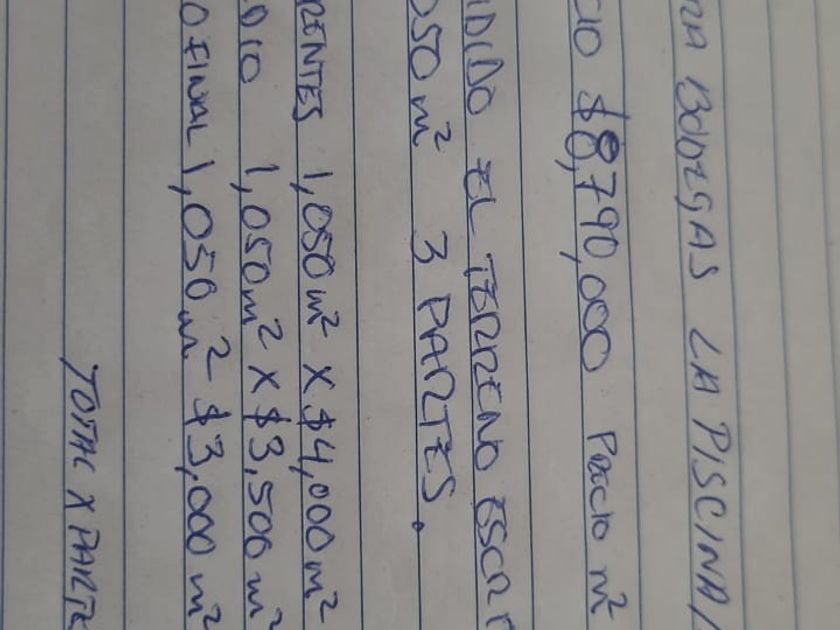 BODEGAS LA PISCINA
CIO $8,790,000 PRECIO m²
DIDO EL TERRENO ESCRI
050 m² 3 PARTES.
RENTES 1,050 m² X $4,000 m²
DIO 1,050 m² X $3,500 m²
O FINAL 1,050 m² $3,000 m²
TOTAL X PARTE